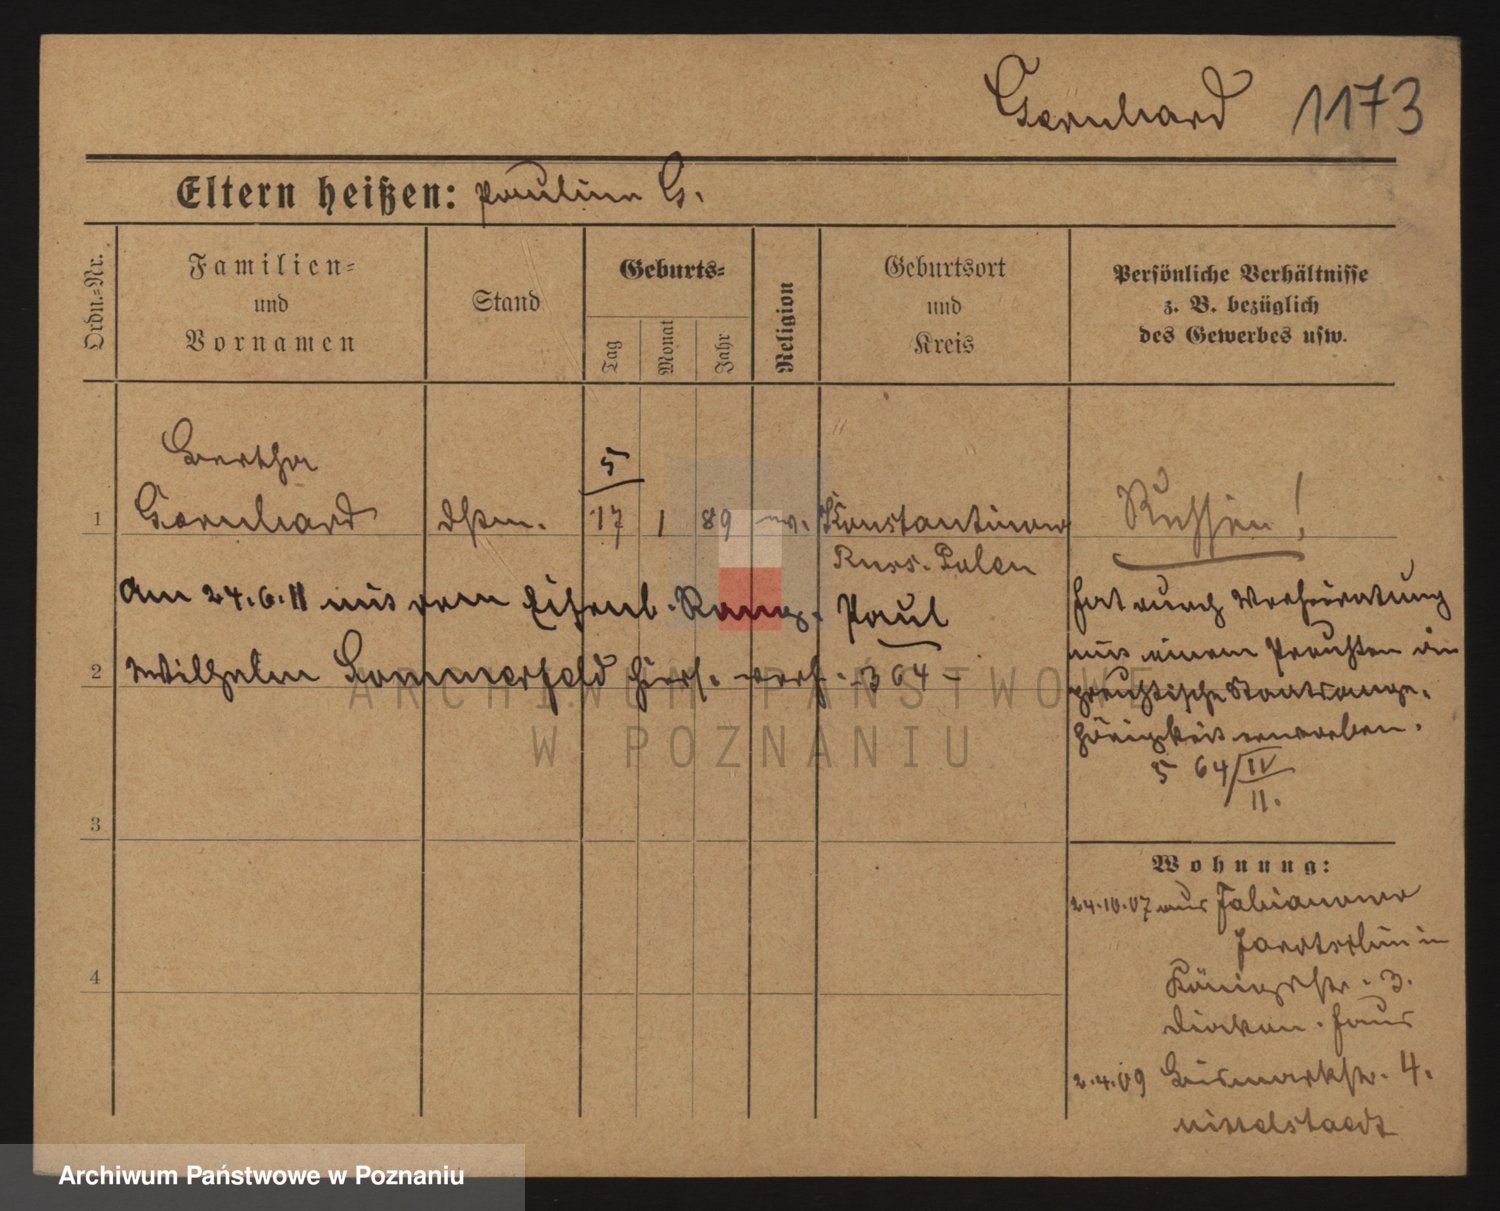 Gernhard 1173
Eltern heißen: Pauline G.
Ordn.-Nr.
Familien-
und
Vornamen
Stand
Geburts-
Tag
Monat
Jahr
Religion
Geburtsort
und
Kreis
Persönliche Verhältnisse
z. B. bezüglich
des Gewerbes usw.
Bertha
5
1 Gernhard 17 1 89 ev. Konstantinow
Russ. Polen
Russin!
Am 24.6.11 mit dem Eisenb. Paul
2 Wilhelm Sommerfeld hiers. verh. 364 –
hat durch Verheiratung
mit einem Preußen die
preußische Staatsange-
hörigkeit erworben.
5 64/IV
11.
3
4
Wohnung:
24.10.07 aus Fabianowo
Jarotschin in
Königstr. 3.
Diakon. Haus
2.4.09 Bismarckstr. 4.
Mittelstaedt
ARCHIWUM PAŃSTWOWE
W POZNANIU
Archiwum Państwowe w Poznaniu